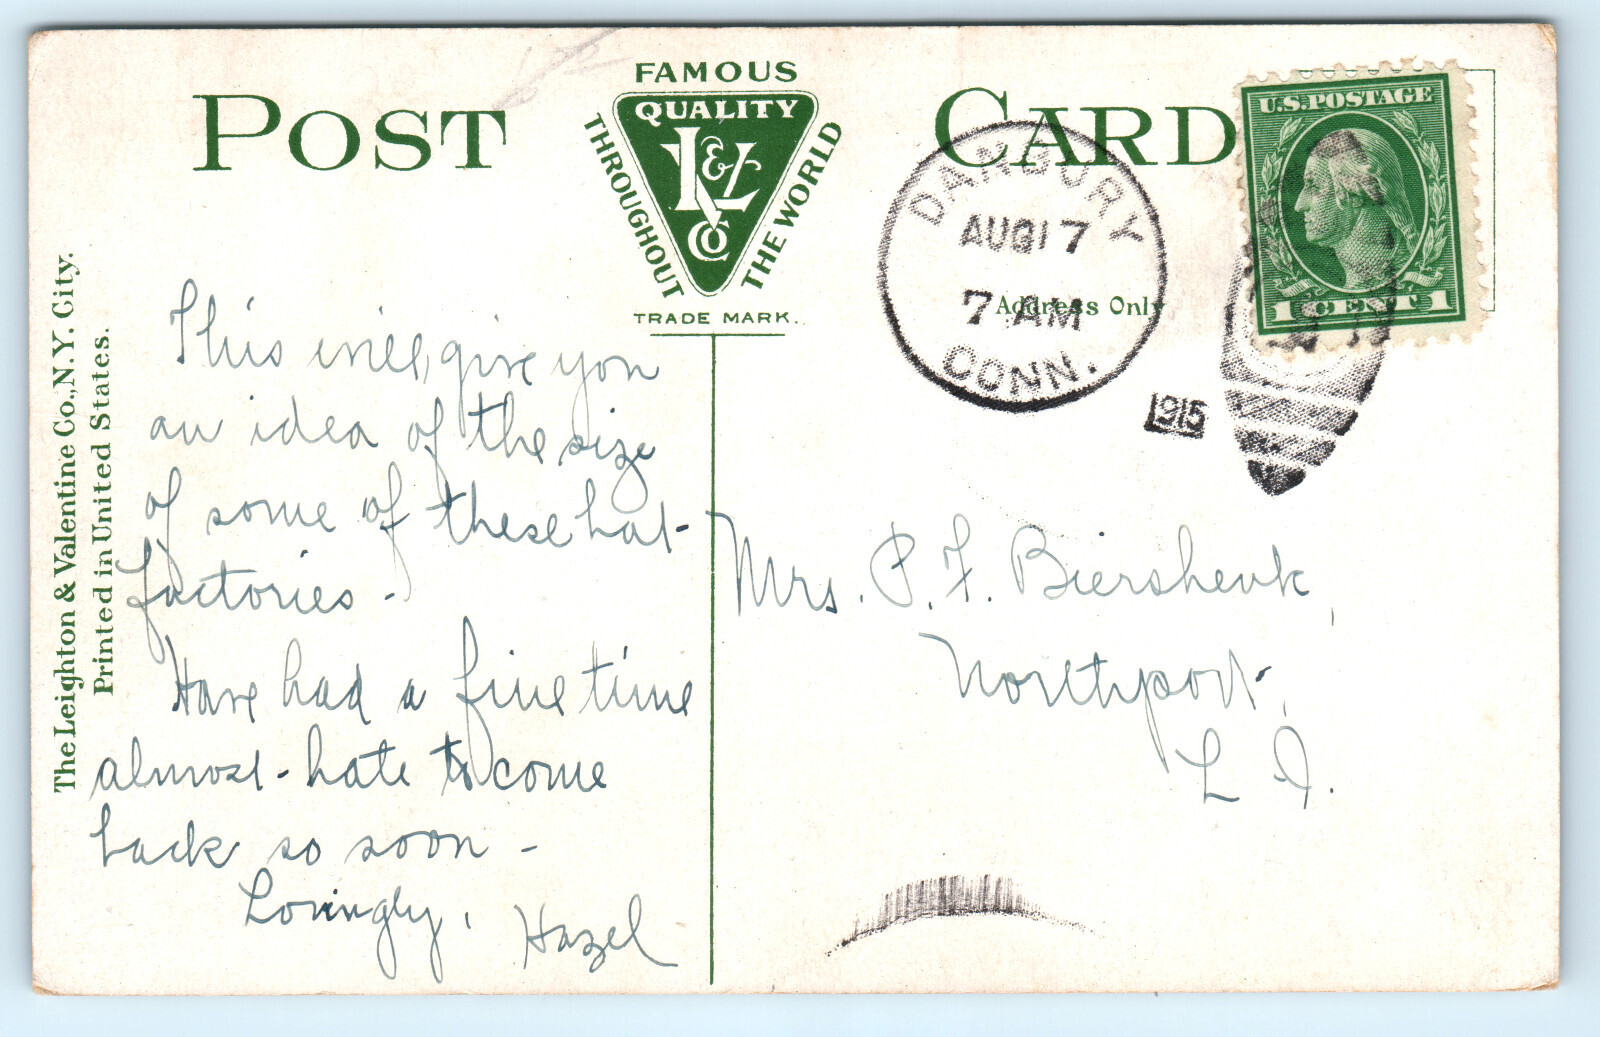 POST CARD
FAMOUS
QUALITY
THROUGHOUT
THE WORLD
L&V
Co
TRADE MARK.
Address Only
The Leighton & Valentine Co., N.Y. City.
Printed in United States.
U.S. POSTAGE
1 CENT 1
DANBURY
AUG 17
7 AM
CONN.
1915
This will give you
an idea of the size
of some of these hat-
factories -
Have had a fine time
almost - hate to come
back so soon -
Lovingly,
Hazel
Mrs. P. F. Biershenk,
Northport,
L I.